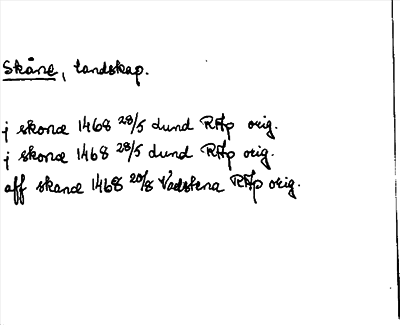 Skåne, landskap.
j skonæ 1468 28/5 Lund RAp orig.
j skonæ 1468 28/5 Lund RAp orig.
aff skanæ 1468 20/8 Vadstena RAp orig.